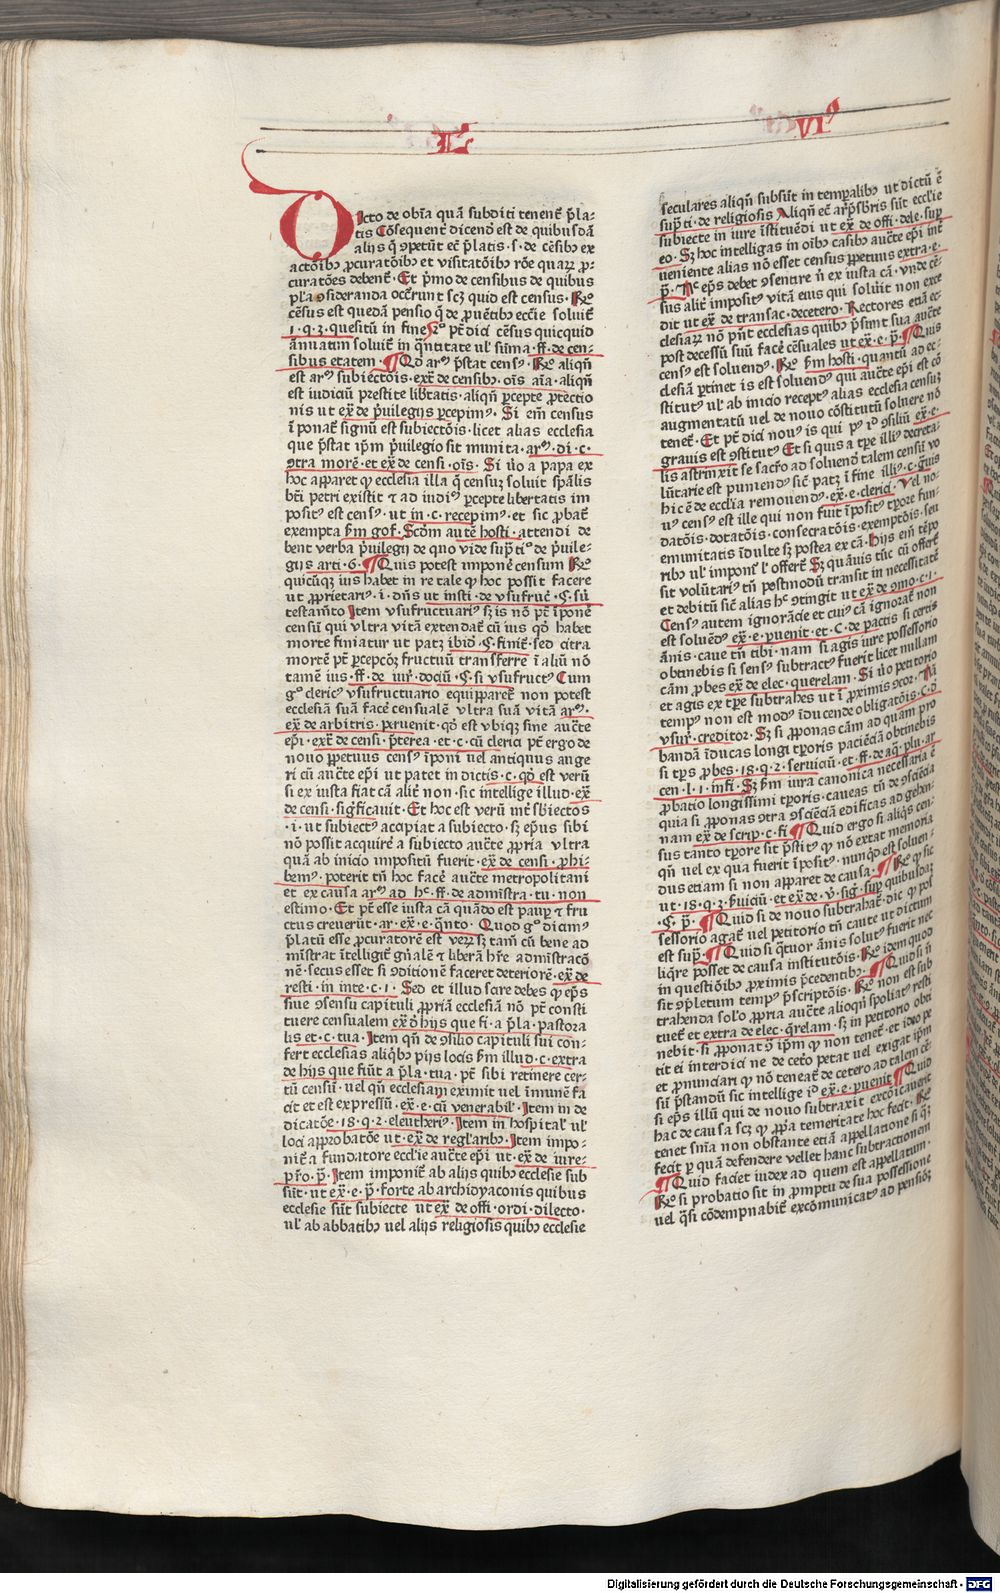 L VI⁹
DIcto de obīa quā subditi tenent̄ p̄la-
tis Cōsequent̄ dicend est de quibusdā
alijs q̄ ꝯpetūt ec̄ p̄latis·s·de cēsibꝰ ex
actōibꝫ ꝓcuratōibꝫ et visitatōibꝫ rōe quaꝝ ꝓ-
curatōes debent̄·Et p̄mo de censibus de quibus
pl̄a ꝯsideranda occ̄runt scꝫ quid est census·℞o
cēsus est quedā pensio q̄ de ꝓuētibꝫ ecc̄ie soluit̄
1·q·3·quesitū in fine pt̄ dici cēsus quicquid
ānuatim soluit̄ in q̄ntitate ul̓ sūma·ff·de cen-
sibus etatem·¶Qd arꝰ p̄stat censꝰ·℞o aliqn̄
est arꝰ subiectōis·ext̄ de censibꝫ·oīs aīa·aliqn̄
est iudiciū prestite lib̄tatis·aliqn̄ ꝑcepte ꝓtectio
nis ut ex̄ de p̄uilegijs ꝑcepimꝰ·Si em̄ census
īponat̄ signū est subiectōis·licet alias ecclesia
que p̄stat ip̄m p̄uilegio sit munita·arꝰ·di·c·
ꝯtra morē·et ex̄ de censi·oīs·Si ūo a papa ex
hoc apparet ꝙ ecclesia illa q̄ censuꝫ soluit sp̄alis
bt̄i petri existit ⁊ ad iudiꝰ ꝑcepte libertatis im
positꝰ est censꝰ·ut in·c·recepimꝰ·et sic ꝓbat̄
exempta ẜm gof·Scd̄m aut̄e hosti·attendi de
bent verba p̄uilegij de quo vide sup̄ tiº de p̄uile-
gijs arti·6·¶Quis potest imponē censum ℞o
quicūqꝫ ius habet in re tale ꝙ hoc possit facere
ut ꝓprietariꝰ·i·dn̄s ut insti·de vsufruc̄·§·sū
testam̄to Item vsufructuariꝰ sꝫ is nō pt̄ īponē
censū qui vltra vitā extendat̄ cū ius qd̓ habet
morte finiatur ut patꝫ ibid̓·§·finit̄·sed citra
mortē pt̄ ꝑcepcōꝫ fructuū transferre ī aliū nō
tamē ius·ff·de iur̄·dociū·§·si vsufructꝰ Cum
gº clericꝰ vsufructuario equipparet̄ non potest
ecclesiā suā facē censualē vltra suā vitā arꝰ·
ex̄ de arbitris·ꝑuenit·qd̓ est vbiqꝫ sine auct̄e
ep̄i·ext̄ de censi·p̄terea·et·c·cū clerici pt̄ ergo de
nouo ꝑpetuus censꝰ īponi uel antiquus auge
ri cū auct̄e ep̄i ut patet in dictis·c·qd̓ est verū
si ex iusta fiat cā alit̄ non·sic intellige illud·ex̄
de censi·significauit·Et hoc est verū int̄ sbiectos
·i·ut subiectꝰ accipiat a subiecto·sꝫ ep̄us sibi
nō possit acquirē a subiecto auct̄e ꝓpria vltra
quā ab inicio impositū fuerit·ex̄ de censi·ꝓhi-
bemꝰ·poterit tn̄ hoc facē auct̄e metropolitani
et ex causa arꝰ ad hᶜ·ff·de admīstra·tu·non
estimo·Et pt̄ esse iusta cā quādo est paup ⁊ fru
ctus creuerūt·ar·ex̄·e·q̄nto·Quod gº dicimꝰ
p̄latū esse ꝓcuratorē est veꝝ sꝫ tam̄ cū bene ad
mīstrat ītelligit̄ gn̄alē ⁊ liberā hr̄e admistracō
nē·secus esset si ꝯditionē faceret deteriorē·ex̄ de
resti·in inte·c·1·Sed et illud scire debes ꝙ ep̄s
sine ꝯsensu capituli ꝓpriā ecclesiā nō pt̄ consti
tuere censualem ex̄ d̓ hijs que fi·a p̄la·pastora
lis et·c·tua·Item qn̄ de ꝯsilio capituli sui con-
fert ecclesias aliqbꝫ pijs locis ẜm illud·c·extra
de hijs que fiūt a p̄la·tua·pt̄ sibi retinere cer-
tū censū·vel qn̄ ecclesiam eximit vel īmunē fa
cit et est expressū·ex̄·e·cū venerabil̓·Item in de
dicatōe·18·q·2·eleutheriꝰ·Item in hospital̓ ul̓
loci approbatōe ut·ex̄ de regl̓aribꝫ·Item impo-
nit̄ a fundatore eccl̄ie auct̄e ep̄i ut·ex̄ de iure-
pr̄o·p̄·Item imponit̄ ab alijs quibꝫ ecclesie sub
sūt·ut ex̄·e·p̄·forte ab archidyaconis quibus
ecclesie sūt subiecte ut ex̄ de offi·ordi·dilecto·
ul̓ ab abbatibꝫ uel alijs religiosis quibꝫ ecclesie
seculares aliqn̄ subsūt in temp̄alibꝫ ut dictū ē
sup̄ ti·de religiosis Aliqn̄ ec̄ arp̄sbris sūt eccl̄ie
subiecte in iure īstituēdi ut ex̄ de offi·dele·sup
eo·Sꝫ hoc intelligas in oībꝫ casibꝫ auct̄e ep̄i int̄
ueniente alias nō esset census ꝑpetuus extra·e·
p̄·Nᶜ ep̄s debet ꝯsentire n̄ ex iusta cā·vnde cē-
sus alit̄ impositꝰ vitā eius qui soluit non exce
dit ut ex̄ de transac·decetero·Rectores etiā ec-
clesiaꝝ nō pn̄t ecclesias quibꝫ p̄sunt sua auct̄e
post decessū suū facē cēsuales ut ex̄·e·p̄·¶Quis
censꝰ est soluendꝰ·℞o ẜm hosti·quantū ad ec-
clesiā ꝑtinet is est soluendꝰ qui auct̄e ep̄i est cō
stitutꝰ ul̓ ab inicio receptꝰ alias ecclesia censuꝫ
augmentatū uel de nouo cōstitutū soluere nō
tenet̄·Et pt̄ dici nouꝰ is qui pꝰ ıᵈ ꝯsiliū ex̄·e·
grauis est ꝯstitutꝰ Et si quis a tꝑe illiꝰ decreta-
lis astrinxit se sacr̄o ad soluend talem censū vo
lūtarie est puniendꝰ sic̄ patꝫ ī fine illiꝰ·c·g̃uis
hic ē de eccl̄ia remouendꝰ·ex̄·e·clerici·Vel no-
uꝰ censꝰ est ille qui non fuit īpositꝰ tꝑore fun-
datōis·dotatōis·consecratōis·exemptōis·seu
emunitatis īdulte sꝫ postea ex cā·Hijs em̄ tēpo
ribꝫ ul̓ imponī l̓ offerri Sꝫ quāuis tūc cū offert̄
sit volūtariꝰ tn̄ postmodū transit in necessitatē
et debitū sic̄ alias hᶜ ꝯtingit ut ex̄ de ꝯmo·c·1·
Censꝰ autem ignorācie et cuiꝰ cā ignorat̄ non
est soluēdꝰ ex̄·e·puenit·et·C·de pactis si certis
ānis·caue tn̄ tibi·nam si agis iure possessorio
obtinebis si sensꝰ subtractꝰ fuerit licet nullam
cām ꝓbes ex̄ de elec·querelam·Si ūo petitorio
et agis ex tꝑe subtrahes ut ī ꝓximis ꝯcoꝛ·Nā
tempꝰ non est modꝰ īducende obligatōis·c·d̓
vsur̄·creditoꝛ·Sꝫ si ꝓponas cām ad quam pro
bandā īducas longi tꝑoris paciēciā obtinebis
si tꝑs ꝓbes·18·q·2·seruiciū·et·ff·de aq·plu·ar
cen·l·1·ī·fi·Sꝫ ẜm iura canonica necessaria ē
ꝓbatio longissimi tꝑoris·caueas tn̄ de ꝯsciēcia
quia si ꝓponas ꝯtra ꝯsciēciā edificas ad gehen-
nam ex̄ de scrip·c·fi ¶Quid ergo si aliqs cen-
sus tanto tꝑore sit p̄stitꝰ ꝙ nō extat memoria
qn̄ uel ex qua fuerit īpositꝰ·nunqd̓ est soluen-
dus etiam si non apparet de causa·¶℞o ꝙ sic
ut·18·q·2·ẜuiciū·et ex̄·de·v·sig̓·sup quibusdaꝫ
·§·p̄·¶Quid si de nouo subtrahat̄·dic ꝙ pos
sessorio agat̄ uel petitorio tn̄ caute ut dictum
est sup̄·¶Quid si q̄tuor ānis solutꝰ fuerit nec
liqr̄e posset de causa institutōis·℞o idem quod
in questiōibꝫ ꝓximis p̄cedentibꝫ·¶Quid si n̄
sit ꝯpletum tempꝰ p̄scriptōis·℞o non est sub
trahenda sol̓o ꝓpria auct̄e alioqn̄ spoliatꝰ resti
tuet̄ et extra de elec·q̄relam·sꝫ in petitorio obti
nebit·si ꝓponat̄ ꝯ̄ ip̄m ꝙ non tenet̄·et ideo pe
tit ei interdici ne de cet̄o petat uel exigat ip̄m
et ꝓnunciari ꝙ nō teneat̄ de cetero ad talem cē-
sū p̄standū sic intellige id ex̄·e·puenit ¶Quid
si ep̄s illū qui de nouo subtraxit excōicauerit
hac de causa scꝫ ꝙ ꝓp̄a temeritate hoc fecit·℞o
tenet sn̄ia non obstante etiā appellatione si q̄ꝫ
fecit ꝑ quā defendere vellet hanc subtractionem
¶Quid faciet iudex ad quem est appellatum·
℞o si probatio sit in ꝓmptu de sua possessione
uel q̄si cōdempnabit̄ excōmunicatꝰ ad pensiōꝫ
Digitalisierung gefördert durch die Deutsche Forschungsgemeinschaft - DFG